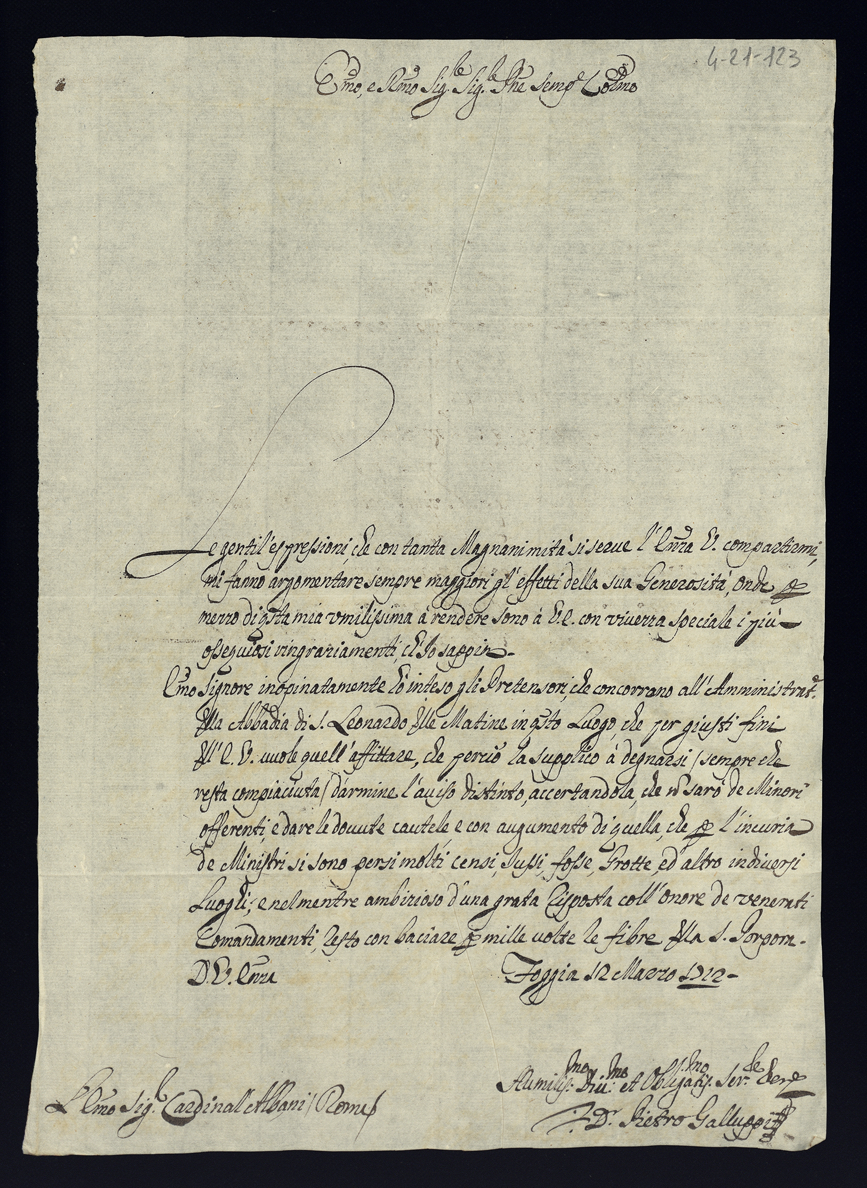 4-21-123
Emo, e Rmo Sig.re Sig.re Pne Semp.e Colmo
Le gentil'espressioni, che con tanta Magnanimità si serve l'Emza V. compartirmi,
mi fanno argomentare sempre maggiori gl'effetti della sua Generosità, onde p
mezzo di qsta mia vmilissima à rendere sono à V.E. con vivezza speciale i più
ossequiosi ringraziamenti, ch'Io sappia.
Emo Signore inopinatamente hò inteso gli Pretensori, che concorrano all'Amministrat.e
dlla Abbadia di S. Leonardo dlle Matine in qsto Luogo, che per giusti fini
dll'E.V. vuole quell'affittare, che perciò la supplico à degnarsi / sempre che
resta compiaciuta / darmine l'aviso distinto, accertandola, che nō sarò de Minori
offerenti, e dare le dovute cautele e con augumento di quella, che p l'incuria
de Ministri si sono persi molti censi, Jussi, fosse, Grotte, ed'altro in diversi
Luoghi; e nel mentre ambizioso d'una grata Risposta coll'onore de venerati
Comandamenti, Resto con baciare p mille volte le fibre dlla S. Porpora.
D.V. Emza
Foggia 12 Marzo 1712
Aumilis.mo Div.mo et Obligatis.mo Ser.re
D.r Pietro Galluppi
L'Emo Sig.r Cardinal'Albani / Roma /